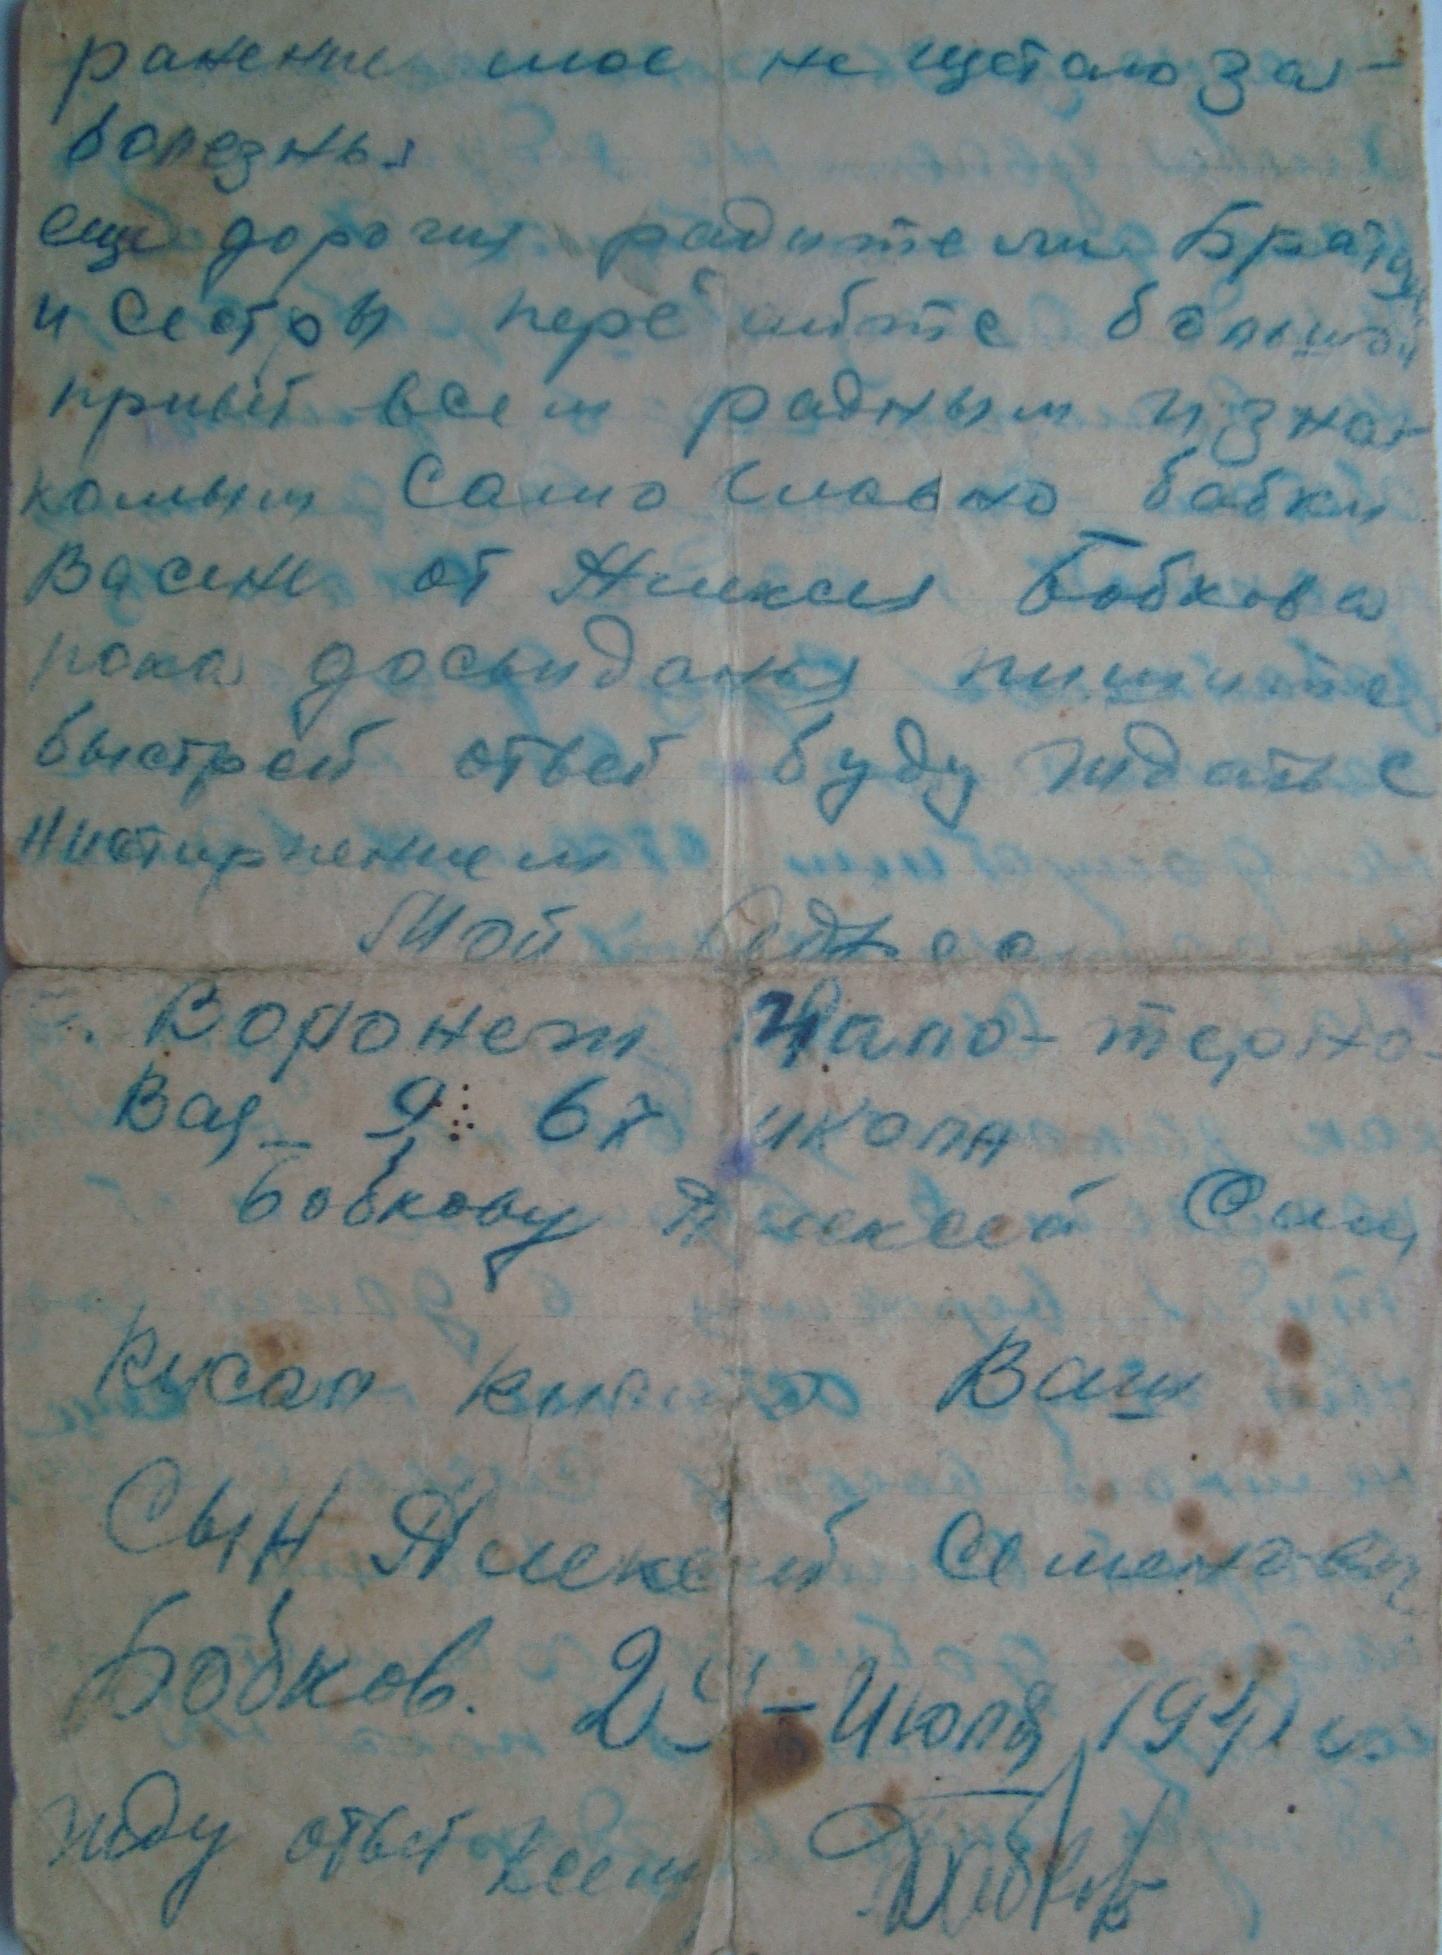 ранение мое не щетаю за-
болезнья
еще дорогия радители Братья
и Сестры пере шлите большой
привет всем радным и зна-
комым Само Главно бабки
Васени от Алексея Бобкова
пока досьиданья пишите
быстрей ответ буду ждать с
нистирпением
Мой Адрес
г. Воронеж Чапо-
Вая 9 бя школа
Бобкову Алексей Сем,
Писал письмо Ваш
Сын Алексей Семенович
Бобков. Июля
жду ответ всем Бобков